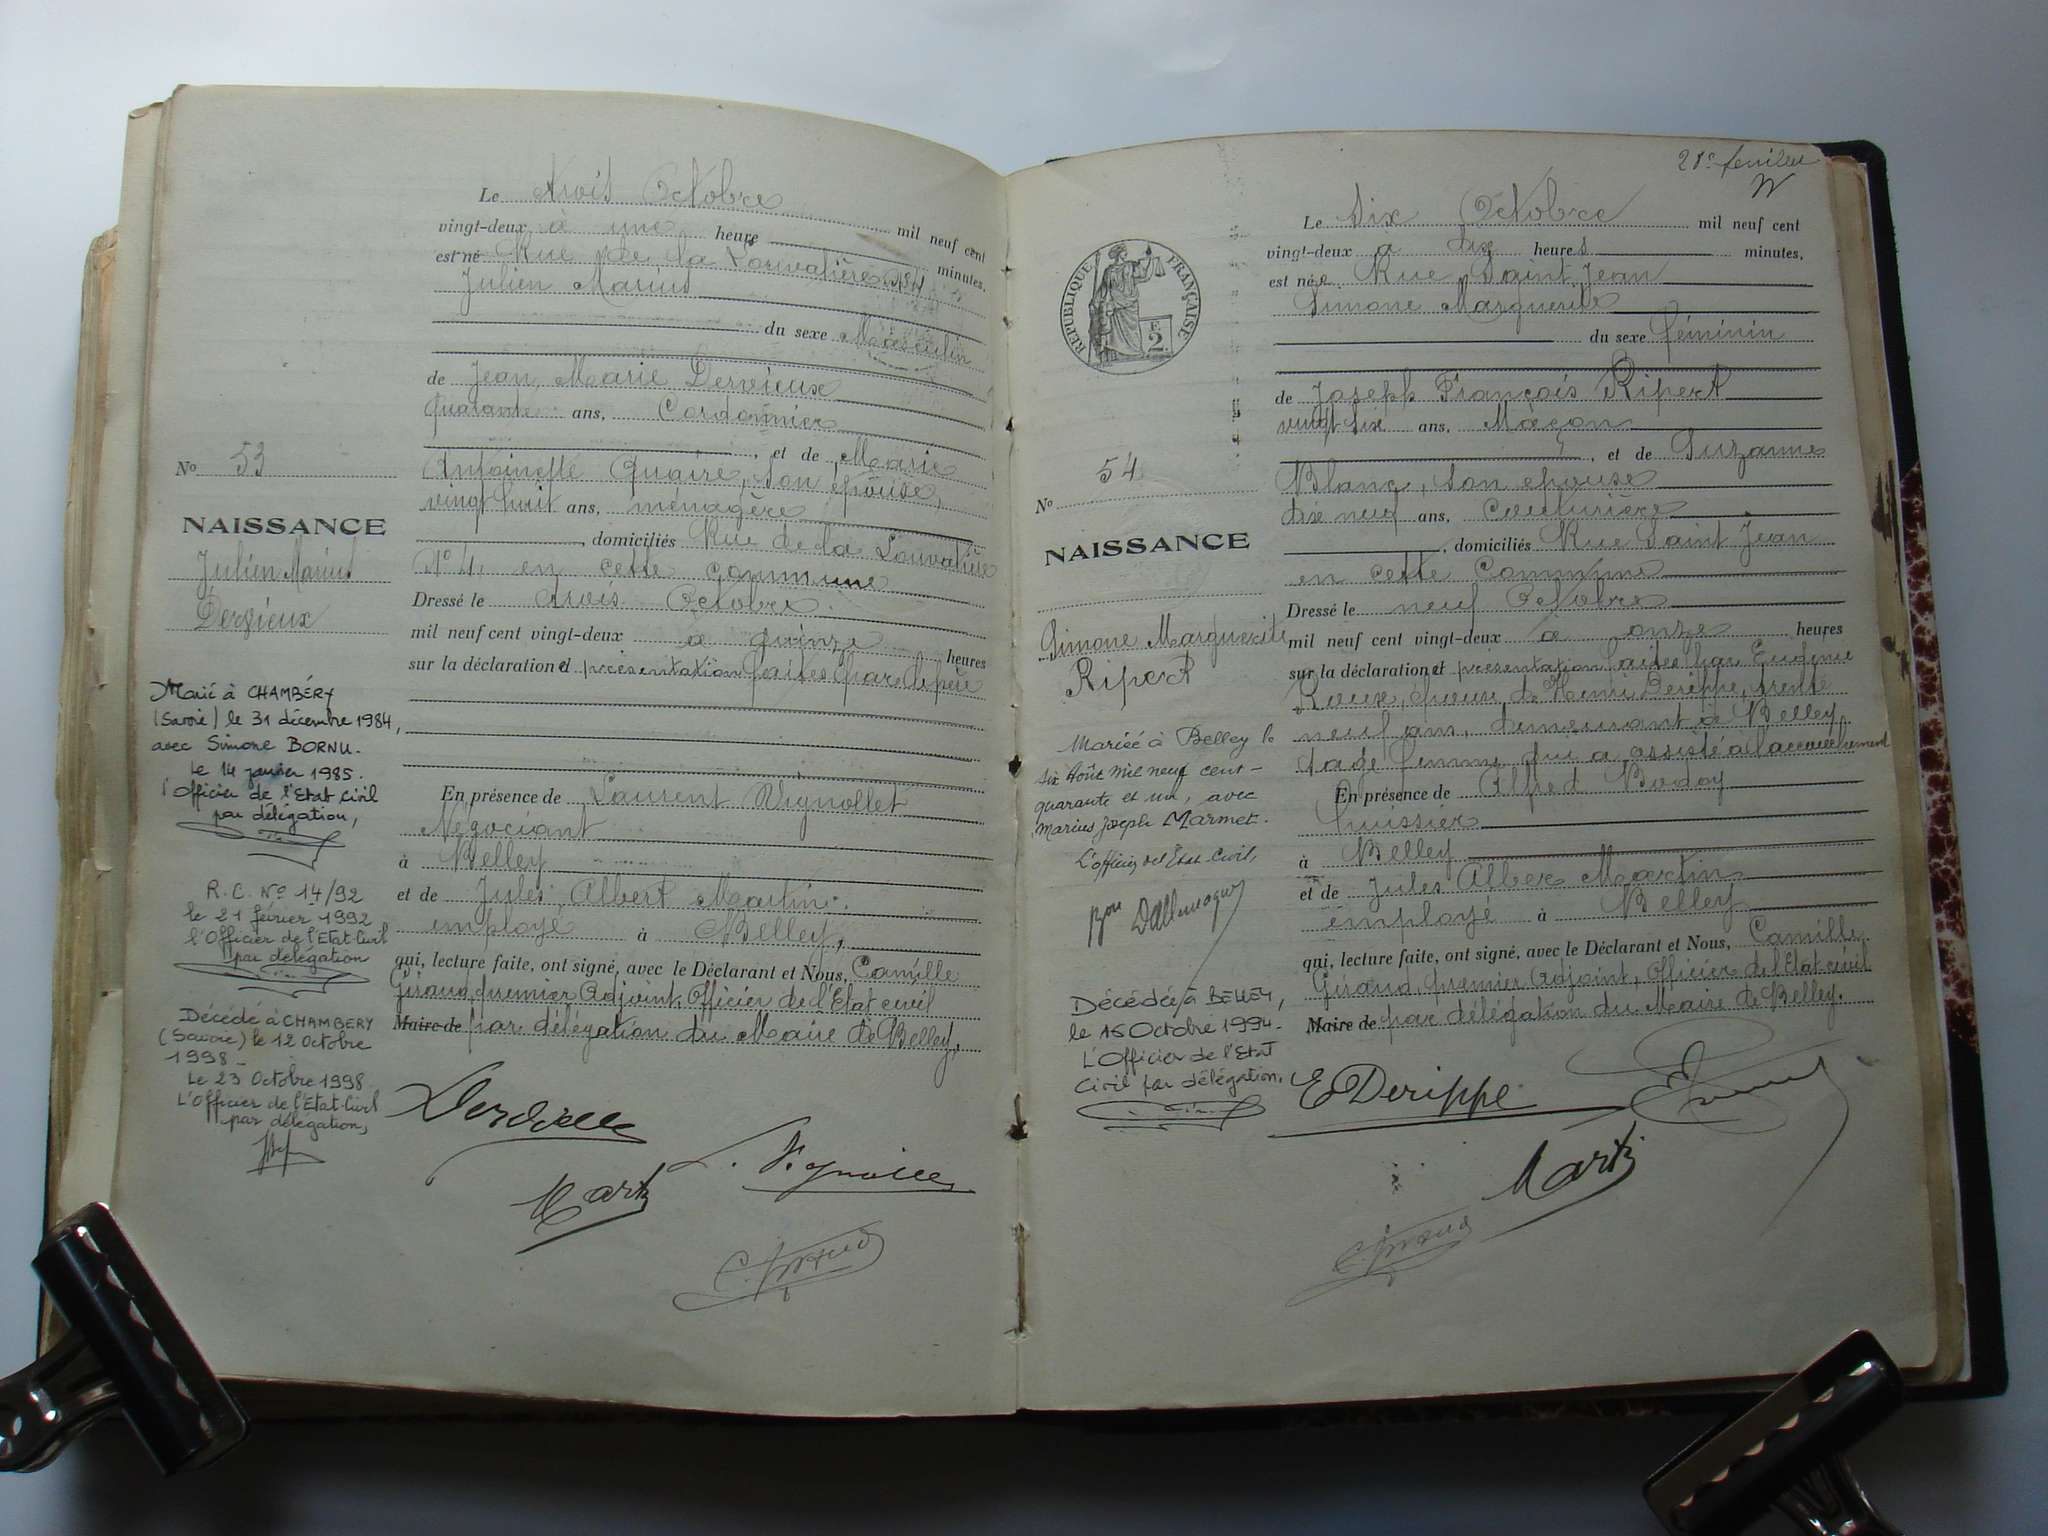 Le trois Octobre mil neuf cent
vingt-deux à une heure minutes,
est né Rue de la Louvatière N°4
Julien Marius
du sexe Masculin
de Jean Marie Dervieux
quarante ans, Cordonnier
, et de Marie
Antoinette Quaire, son épouse,
vingt huit ans, ménagère
, domiciliés Rue de la Louvatière
N° 4, en cette commune
Dressé le trois Octobre
mil neuf cent vingt-deux à quinze heures
sur la déclaration et présentation faites par le père
En présence de Laurent Vignollet
Négociant
à Belley
et de Jules Albert Martin
employé à Belley,
qui, lecture faite, ont signé, avec le Déclarant et Nous, Camille
Giraud, premier Adjoint, Officier de l'Etat civil
Maire de par délégation du Maire de Belley,
No 53
NAISSANCE
Julien Marius
Dervieux
Marié à CHAMBÉRY
(Savoie) le 31 décembre 1984,
avec Simone BORNU.
Le 14 janvier 1985.
l'Officier de l'Etat Civil
par délégation,
R.C. N° 14/92
le 21 février 1992
l'Officier de l'Etat-Civil
par délégation
Décédé à CHAMBERY
(Savoie) le 12 Octobre
1998_
Le 23 Octobre 1998
L'Officier de l'Etat-Civil
par délégation,
Marti
C. Giraud
21e feuillet
RÉPUBLIQUE FRANÇAISE
F.
2
Le Six Octobre mil neuf cent
vingt-deux à dix heures minutes,
est née Rue Saint Jean
Simone Marguerite
du sexe féminin
de Joseph François Ripert
vingt six ans, Maçon
, et de Suzanne
Blanc, son épouse
dix neuf ans, Couturière
, domiciliés Rue Saint Jean
en cette Commune
Dressé le neuf Octobre
mil neuf cent vingt-deux à onze heures
sur la déclaration et présentation faites par Eugénie
Roux, épouse de Henri Derippe, trente
neuf ans, demeurant à Belley,
sage femme qui a assisté à l'accouchement
En présence de Alfred Bodoy
huissier
à Belley
et de Jules Alber Martin
employé à Belley
qui, lecture faite, ont signé, avec le Déclarant et Nous, Camille
Giraud, premier adjoint, Officier de l'Etat civil
Maire de par délégation du Maire de Belley.
No 54
NAISSANCE
Simone Marguerite
Ripert
Mariée à Belley le
six Août mil neuf cent-
quarante et un, avec
Marius Joseph Marmet.
L'officier de l'Etat-Civil,
Décédée à BELLEY,
le 15 Octobre 1994-
L'Officier de l'Etat
Civil par délégation,
E Derippe
Marti
C. Giraud